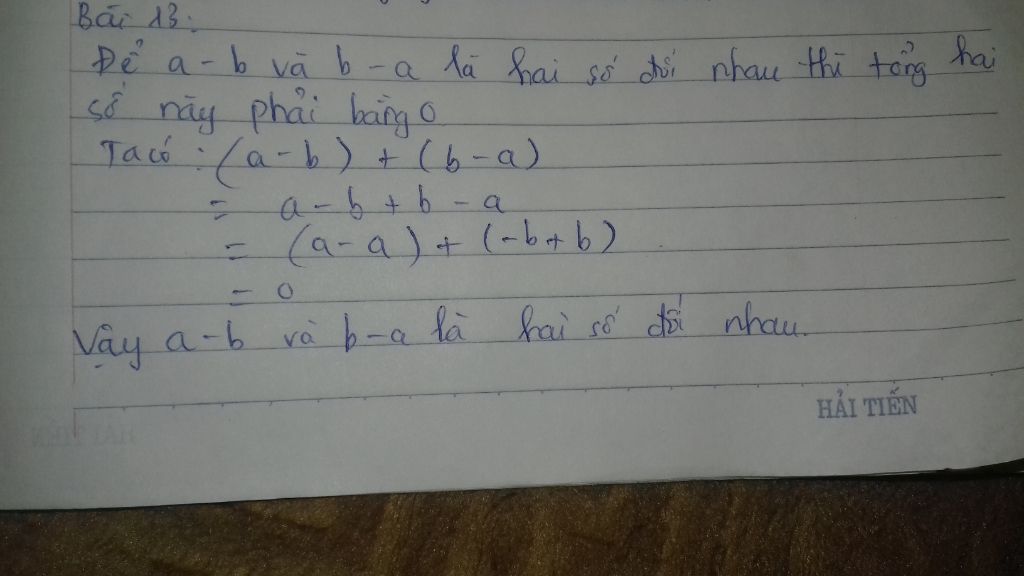 Bài 13:
Để a - b và b - a là hai số đối nhau thì tổng hai
số này phải bằng 0
Ta có : (a - b) + (b - a)
= a - b + b - a
= (a - a) + (-b + b)
= 0
Vậy a - b và b - a là hai số đối nhau.
HẢI TIẾN